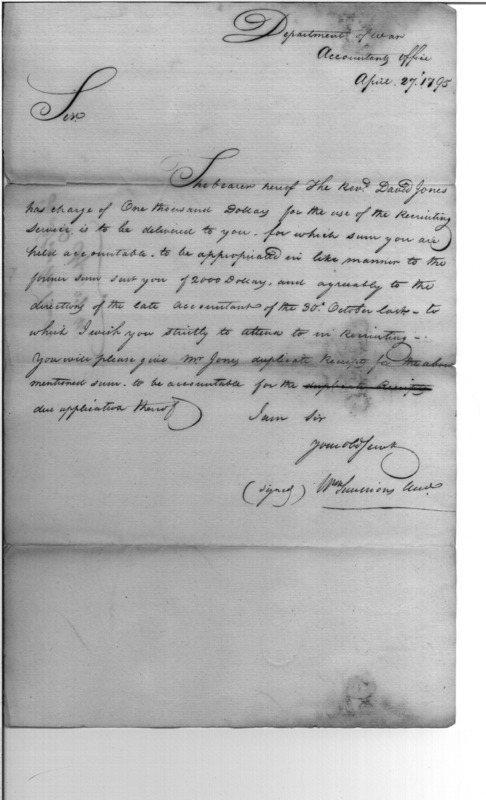 Department of war
Accountants office
April 27.t 1795
Sir.
The bearer hereof The Revd. David Jones
has charge of One thousand Dollars for the use of the Recruiting
Service is to be delivered to you. for which sum you are
held accountable. to be appropriated in like manner to the
former sum sent you of 2000 Dollars, and agreeably to the
directions of the late Accountant of the 30.t October last - to
which I wish you strictly to attend to in Recruiting -.
You will please give Mr Jones duplicate Receipts for the above
mentioned sum. to be accountable for the duplicate Receipts
due application thereof
I am Sir
your obd Servt
(signed) Wm Simmons